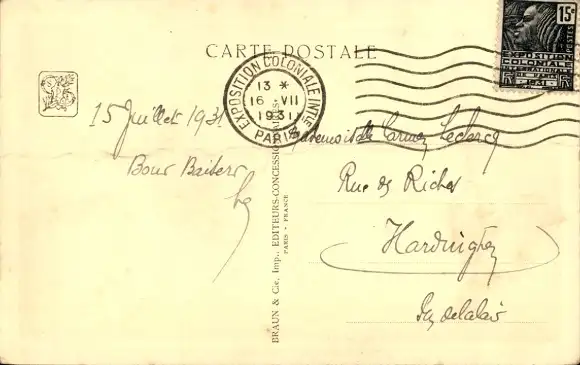 CARTE POSTALE
15c
POSTES
EXPOSITION
COLONIALE
INTERNATIONALE
DE PARIS
1931
RF RF
EXPOSITION COLONIALE INTLE
13 *
16 VII
1931
PARIS
15 Juillet 1931
Bons Baisers
BRAUN & Cie, Imp., EDITEURS-CONCESSIONNAIRES
PARIS - FRANCE
Mademoiselle Carmen Leclercq
Rue de
Hardinghen
Pas de Calais